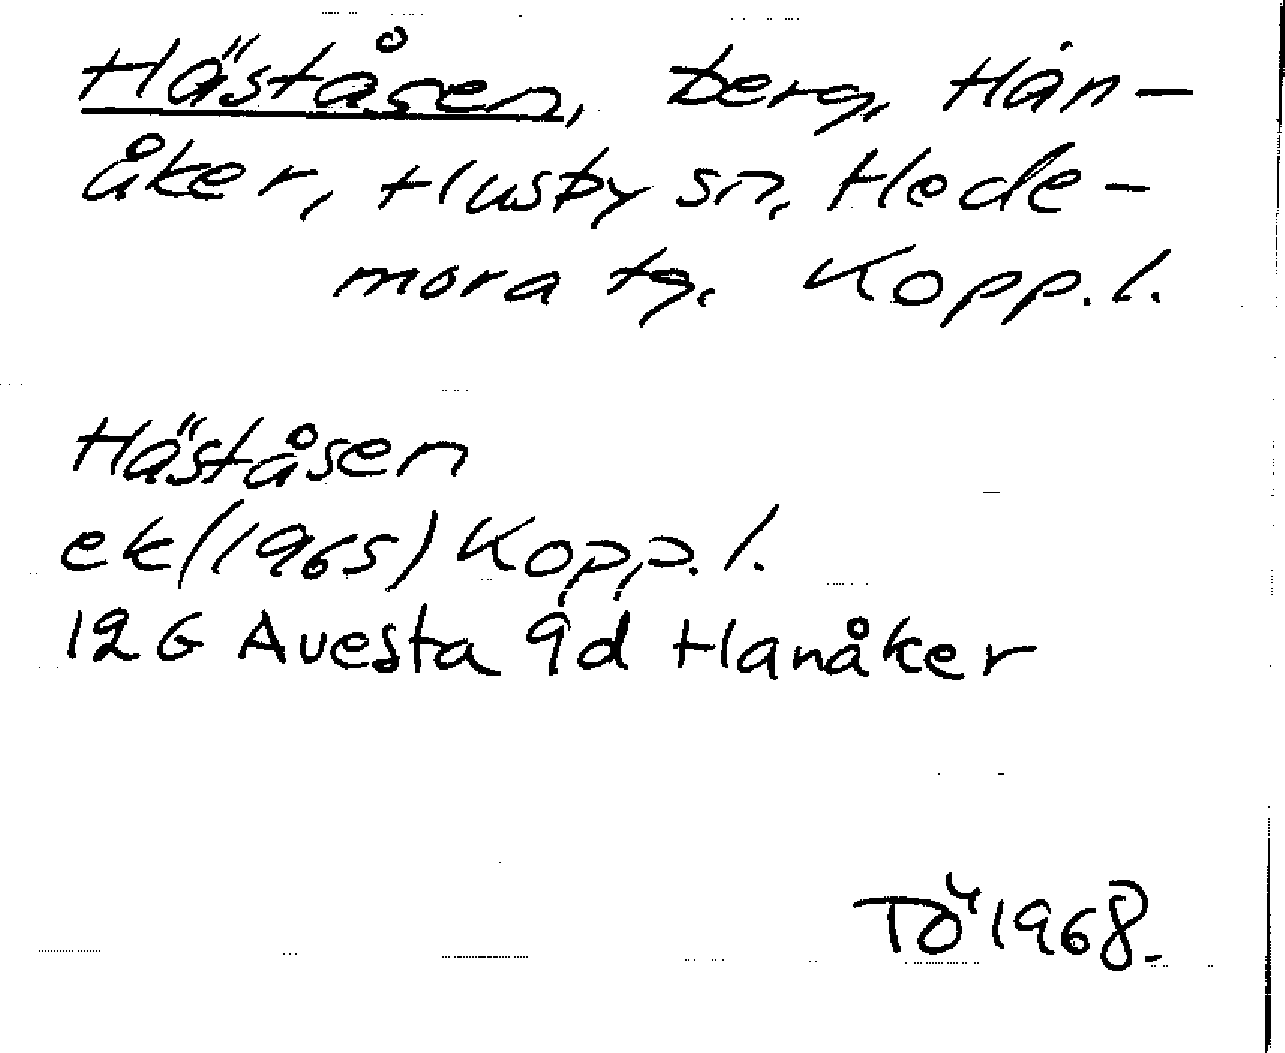 Häståsen, berg, Han-
åker, Husby sn, Hede-
mora tg. Kopp.l.
Häståsen
ek(1965) Kopp.l.
12G Avesta 9d Hanåker
TÖ 1968.